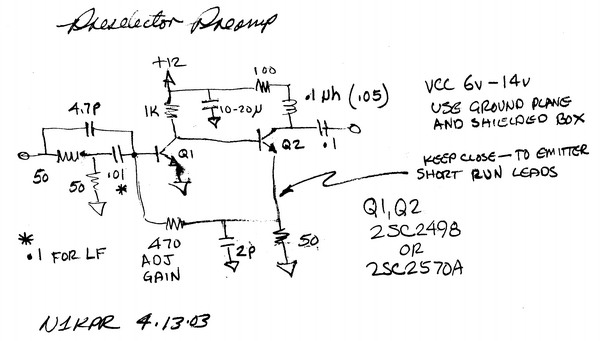 Preselector Preamp
+12
100
4.7P
1K
10-20µ
.1 µh (.05)
VCC 6V-14V
USE GROUND PLANE
AND SHIELDED BOX
Q1
Q2
.1
50
50
.01
*
KEEP CLOSE - TO EMITTER
SHORT RUN LEADS
Q1, Q2
2SC2498
OR
2SC2570A
* .1 FOR LF
470
ADJ
GAIN
2P
50
N1KPR 4.13.03